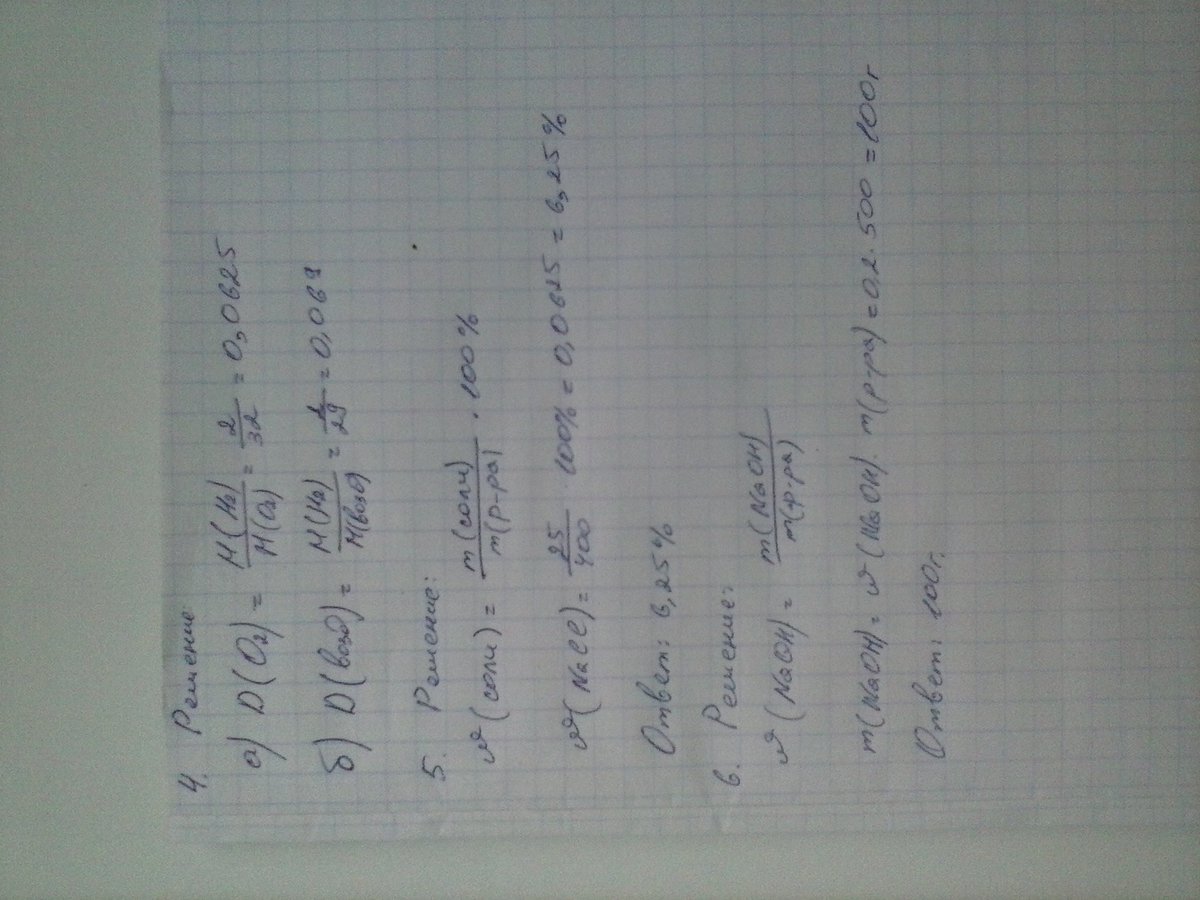 4. Решение
а) D(O₂) = M(H₂)/M(O₂) = 2/32 = 0,0625
б) D(возд) = M(H₂)/M(возд) = 2/29 = 0,069
5. Решение:
ω(соли) = m(соли)/m(р-ра) · 100%
ω(NaCl) = 25/400 100% = 0,0625 = 6,25%
Ответ: 6,25%
6. Решение:
ω(NaOH) = m(NaOH)/m(р-ра)
m(NaOH) = ω(NaOH) · m(р-ра) = 0,2 · 500 = 100г
Ответ: 100г.